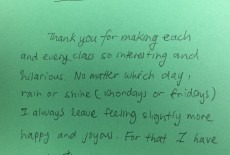 Thank you for making each
and every class so interesting and
hilarious. No matter which day,
rain or shine (Mondays or Fridays)
I always leave feeling slightly more
happy and joyous. For that I have